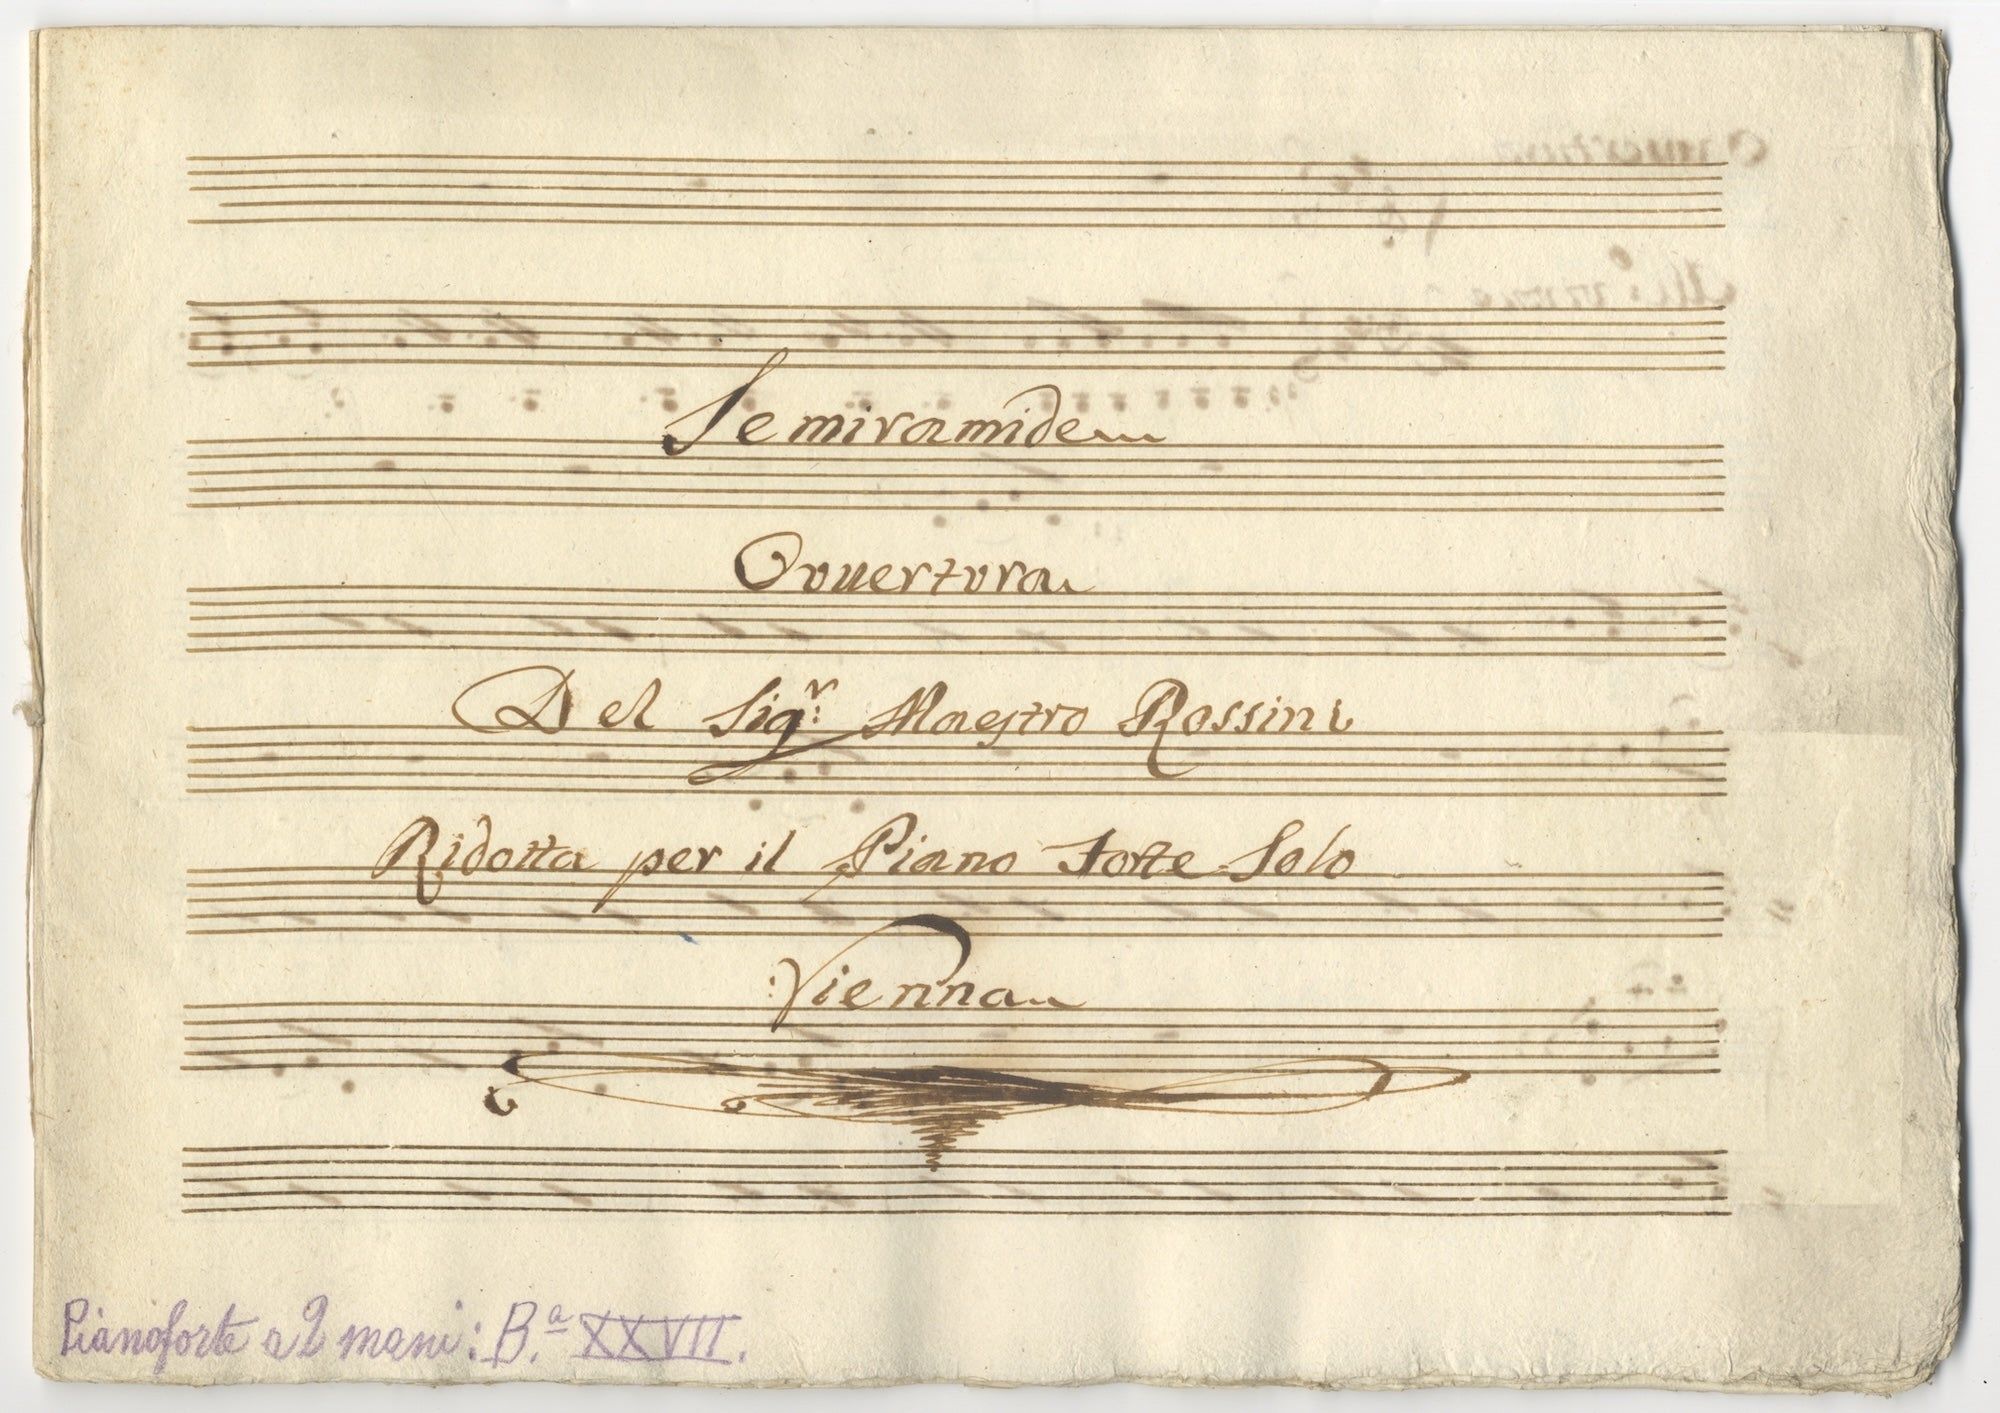 Semiramide
Ouuertura
Del Sigr: Maestro Rossini
Ridotta per il Piano Forte Solo
Vienna
Pianoforte a 2 mani: B.a XXVII.